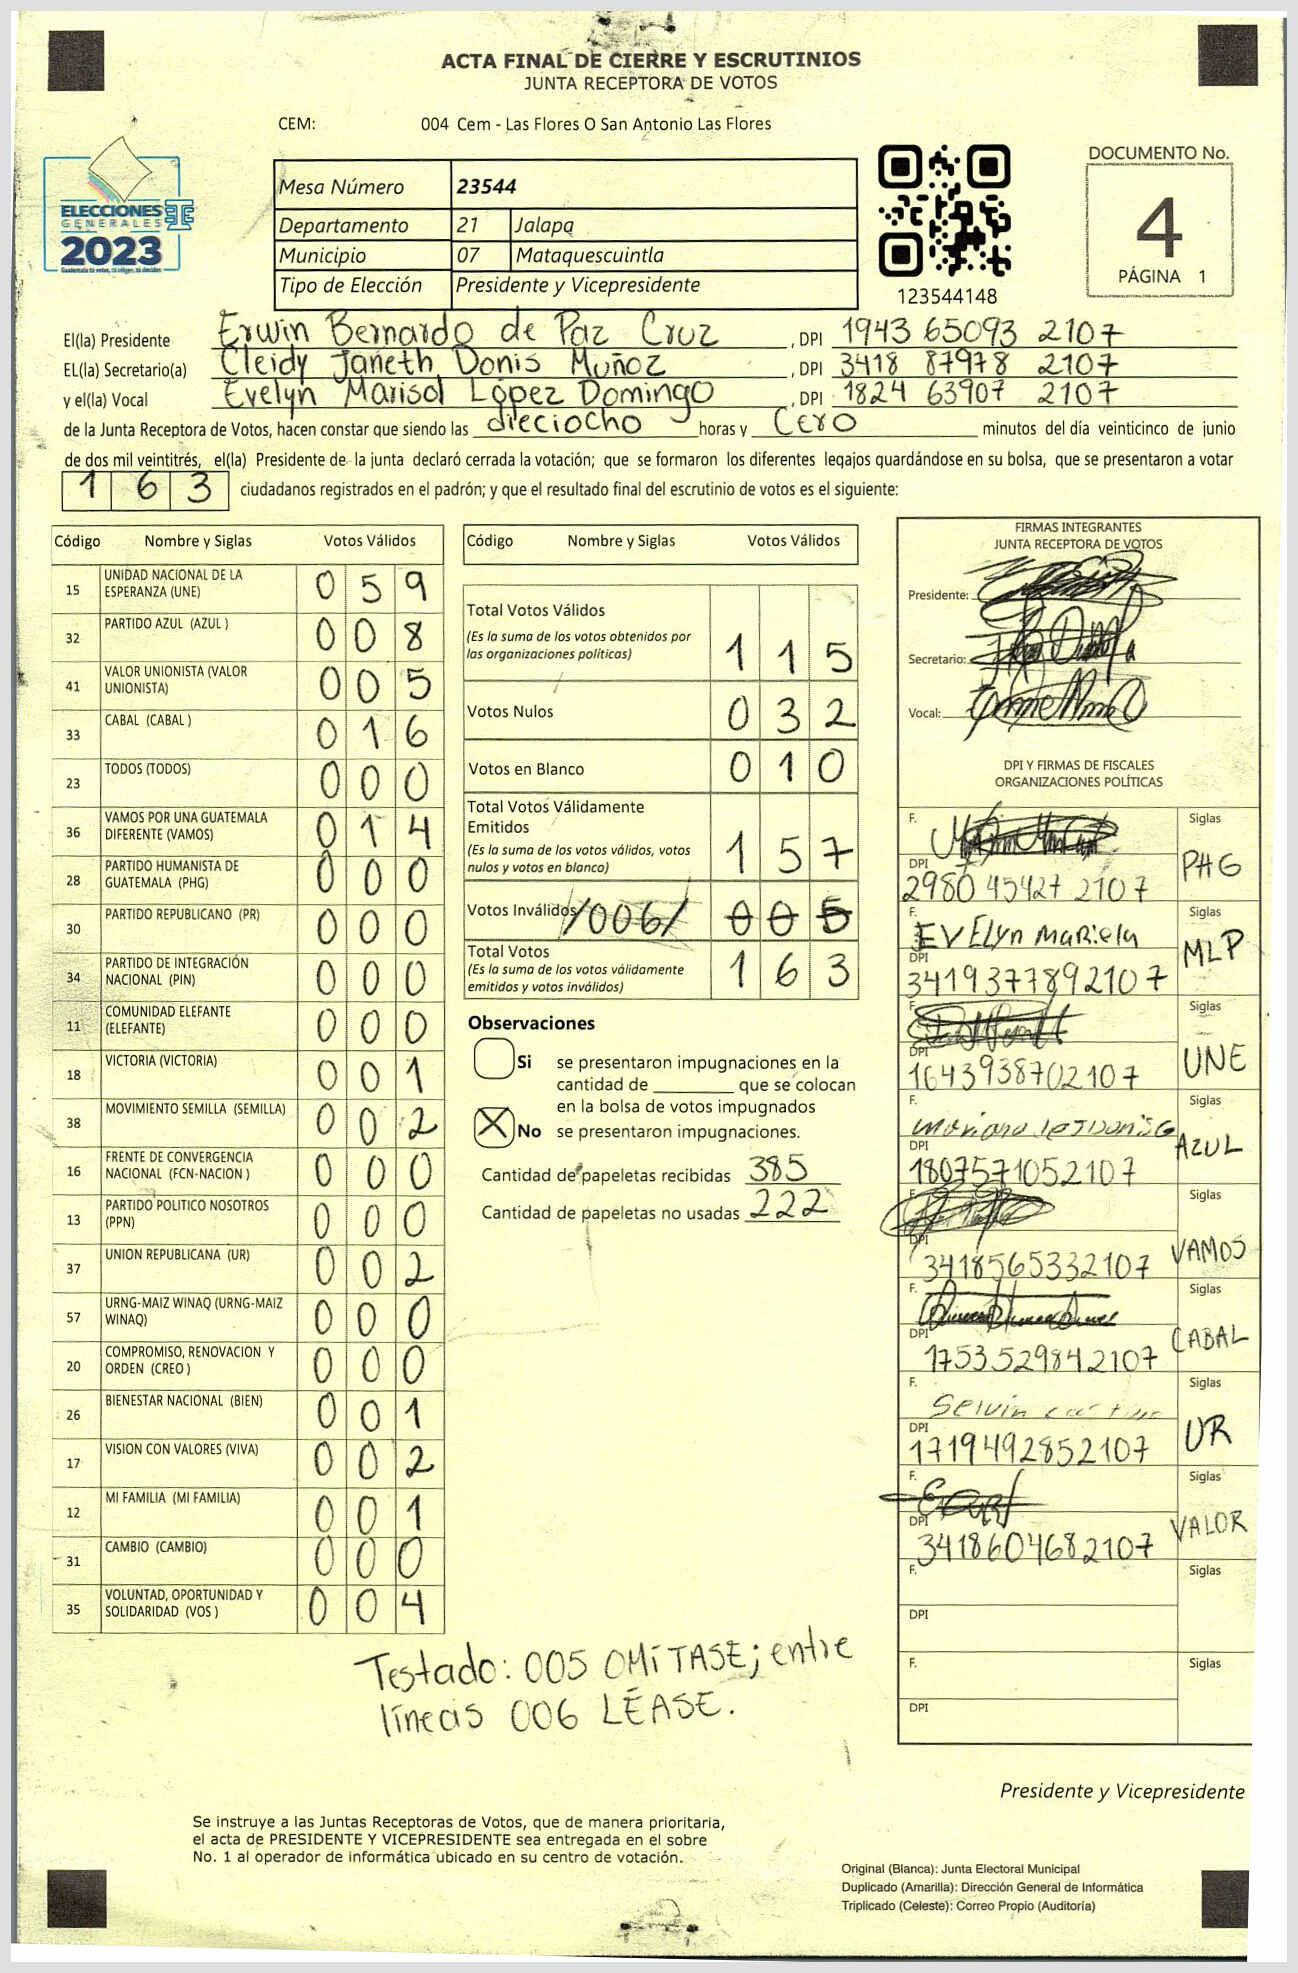 ACTA FINAL DE CIERRE Y ESCRUTINIOS
JUNTA RECEPTORA DE VOTOS
CEM: 004 Cem - Las Flores O San Antonio Las Flores
ELECCIONES
GENERALES
2023
Guatemala tú votas, tú eliges, tú decides
Mesa Número 23544
Departamento 21 Jalapa
Municipio 07 Mataquescuintla
Tipo de Elección Presidente y Vicepresidente
123544148
DOCUMENTO No.
4
PÁGINA 1
El(la) Presidente Erwin Bernardo de Paz Cruz , DPI 1943 65093 2107
EL(la) Secretario(a) Cleidy Janeth Donis Muñoz , DPI 3418 87978 2107
y el(la) Vocal Evelyn Marisol López Domingo , DPI 1824 63907 2107
de la Junta Receptora de Votos, hacen constar que siendo las dieciocho horas y Cero minutos del día veinticinco de junio
de dos mil veintitrés, el(la) Presidente de la junta declaró cerrada la votación; que se formaron los diferentes legajos guardándose en su bolsa, que se presentaron a votar
1 6 3 ciudadanos registrados en el padrón; y que el resultado final del escrutinio de votos es el siguiente:
Código Nombre y Siglas Votos Válidos
15 UNIDAD NACIONAL DE LA ESPERANZA (UNE) 0 5 9
32 PARTIDO AZUL (AZUL ) 0 0 8
41 VALOR UNIONISTA (VALOR UNIONISTA) 0 0 5
33 CABAL (CABAL ) 0 1 6
23 TODOS (TODOS) 0 0 0
36 VAMOS POR UNA GUATEMALA DIFERENTE (VAMOS) 0 1 4
28 PARTIDO HUMANISTA DE GUATEMALA (PHG) 0 0 0
30 PARTIDO REPUBLICANO (PR) 0 0 0
34 PARTIDO DE INTEGRACIÓN NACIONAL (PIN) 0 0 0
11 COMUNIDAD ELEFANTE (ELEFANTE) 0 0 0
18 VICTORIA (VICTORIA) 0 0 1
38 MOVIMIENTO SEMILLA (SEMILLA) 0 0 2
16 FRENTE DE CONVERGENCIA NACIONAL (FCN-NACION ) 0 0 0
13 PARTIDO POLITICO NOSOTROS (PPN) 0 0 0
37 UNION REPUBLICANA (UR) 0 0 2
57 URNG-MAIZ WINAQ (URNG-MAIZ WINAQ) 0 0 0
20 COMPROMISO, RENOVACION Y ORDEN (CREO ) 0 0 0
26 BIENESTAR NACIONAL (BIEN) 0 0 1
17 VISION CON VALORES (VIVA) 0 0 2
12 MI FAMILIA (MI FAMILIA) 0 0 1
31 CAMBIO (CAMBIO) 0 0 0
35 VOLUNTAD, OPORTUNIDAD Y SOLIDARIDAD (VOS ) 0 0 4
Código Nombre y Siglas Votos Válidos
Total Votos Válidos
(Es la suma de los votos obtenidos por
las organizaciones políticas) 1 1 5
Votos Nulos 0 3 2
Votos en Blanco 0 1 0
Total Votos Válidamente
Emitidos
(Es la suma de los votos válidos, votos
nulos y votos en blanco) 1 5 7
Votos Inválidos /006/ 0 0 5
Total Votos
(Es la suma de los votos válidamente
emitidos y votos inválidos) 1 6 3
Observaciones
Si se presentaron impugnaciones en la
cantidad de ________ que se colocan
en la bolsa de votos impugnados
X No se presentaron impugnaciones.
Cantidad de papeletas recibidas 385
Cantidad de papeletas no usadas 222
FIRMAS INTEGRANTES
JUNTA RECEPTORA DE VOTOS
Presidente:
Secretario:
Vocal:
DPI Y FIRMAS DE FISCALES
ORGANIZACIONES POLÍTICAS
F. Siglas
DPI 2980 45427 2107 PHG
F. Evelyn Mariela Siglas
DPI 3419377892107 MLP
F. Siglas
DPI 1643938702107 UNE
F. Siglas
DPI 1807571052107 AZUL
F. Siglas
DPI 3418565332107 VAMOS
F. Siglas
DPI 1753529842107 CABAL
F. Selvin Siglas
DPI 1719492852107 UR
F. Siglas
DPI 3418604682107 VALOR
F. Siglas
DPI
F. Siglas
DPI
Testado: 005 OMÍTASE; entre
líneas 006 LÉASE.
Presidente y Vicepresidente
Se instruye a las Juntas Receptoras de Votos, que de manera prioritaria,
el acta de PRESIDENTE Y VICEPRESIDENTE sea entregada en el sobre
No. 1 al operador de informática ubicado en su centro de votación.
Original (Blanca): Junta Electoral Municipal
Duplicado (Amarilla): Dirección General de Informática
Triplicado (Celeste): Correo Propio (Auditoría)